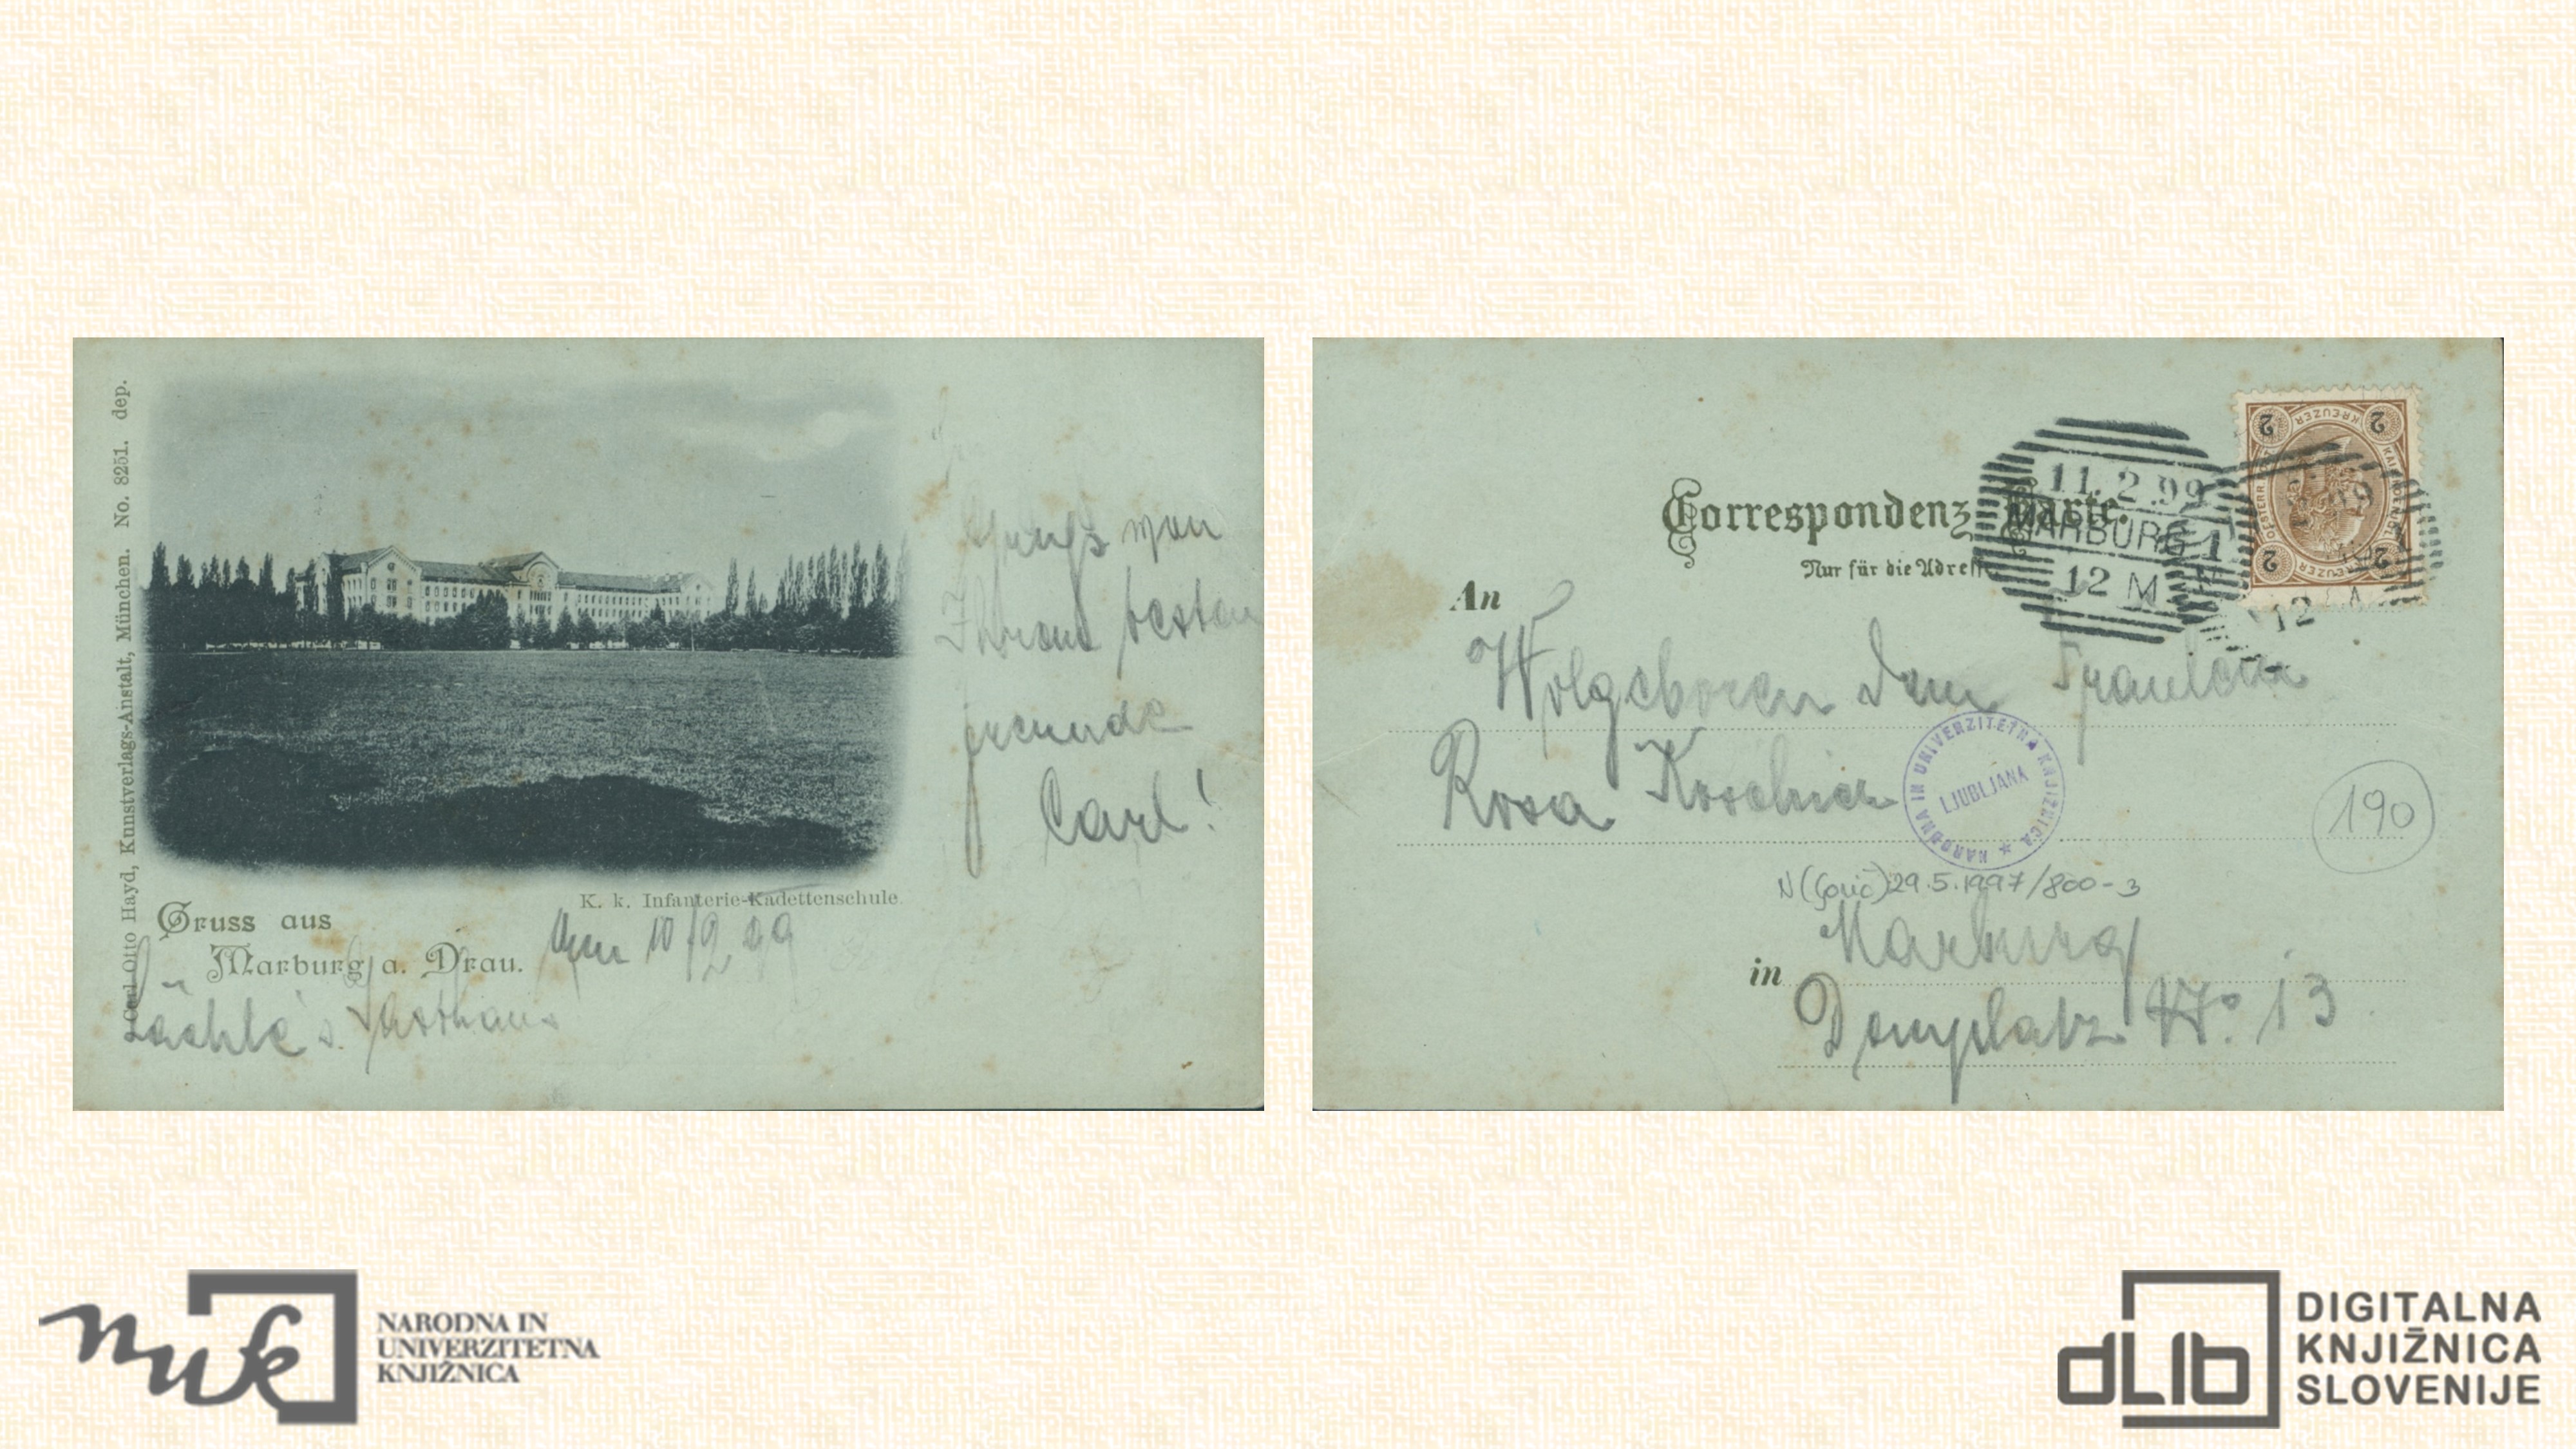 Carl Otto Hayd, Kunstverlags-Anstalt, München. No. 8251. dep.
von
besten
freunde
Carl!
K. k. Infanterie-Kadettenschule.
Gruss aus
Marburg a. Drau.
10/2 99
Gasthaus
Correspondenz-Karte.
Nur für die Adresse
11.2.99
MARBURG 1
12 M
2 KREUZER 2
2 KREUZER 2
An
Wolgeboren dem Fraulein
Rosa
NARODNA IN UNIVERZITETNA KNJIŽNICA
LJUBLJANA
190
29.5.1997/800-3
in Marburg
Domplatz No. 13
nuk
NARODNA IN
UNIVERZITETNA
KNJIŽNICA
dLib
DIGITALNA
KNJIŽNICA
SLOVENIJE